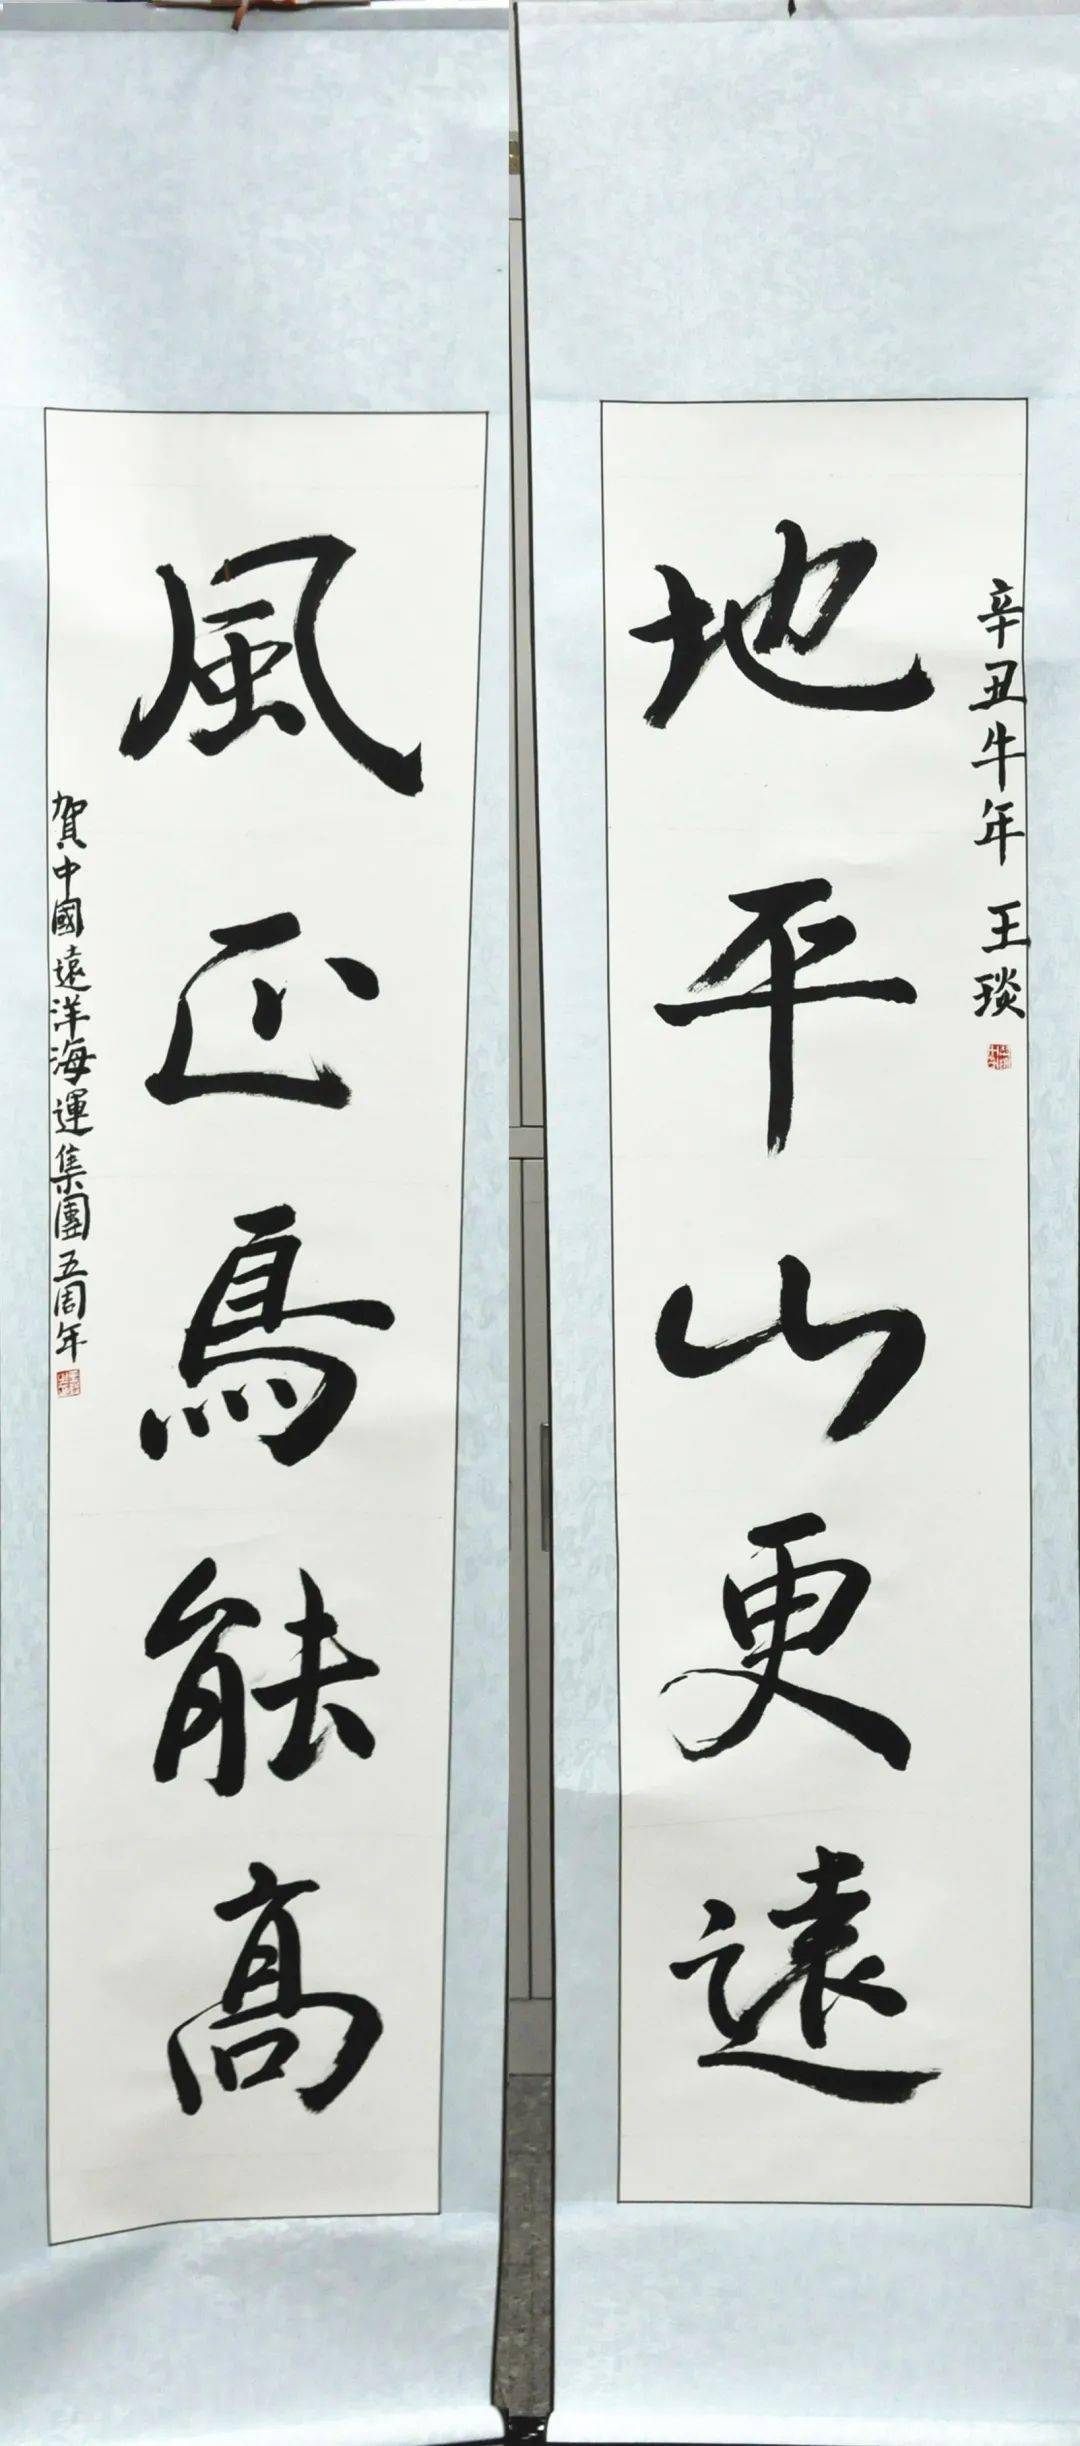 辛丑牛年 王琰
地平山更遠
風正鳥能高
賀中國遠洋海運集團五周年